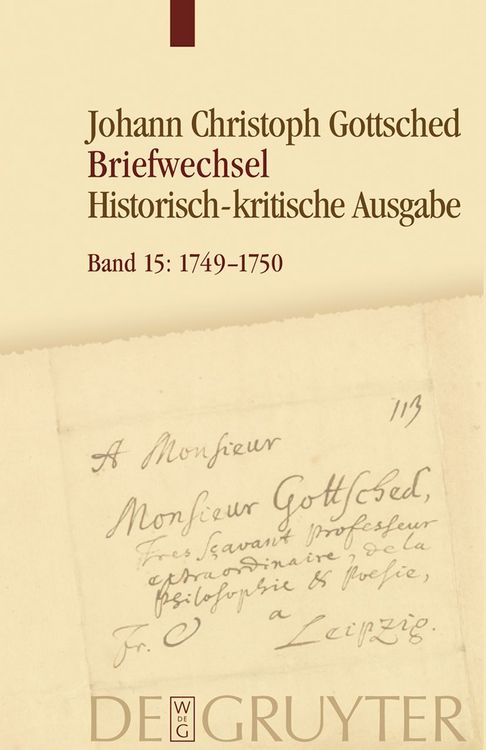 Johann Christoph Gottsched
Briefwechsel
Historisch-kritische Ausgabe
Band 15: 1749–1750
113
A Monsieur
Monsieur Gottsched,
Tres Sçavant Professeur
extraordinaire, de la
Philosophie & Poesie,
a
Fr.
Leipzig.
DE GRUYTER
W
DE
G